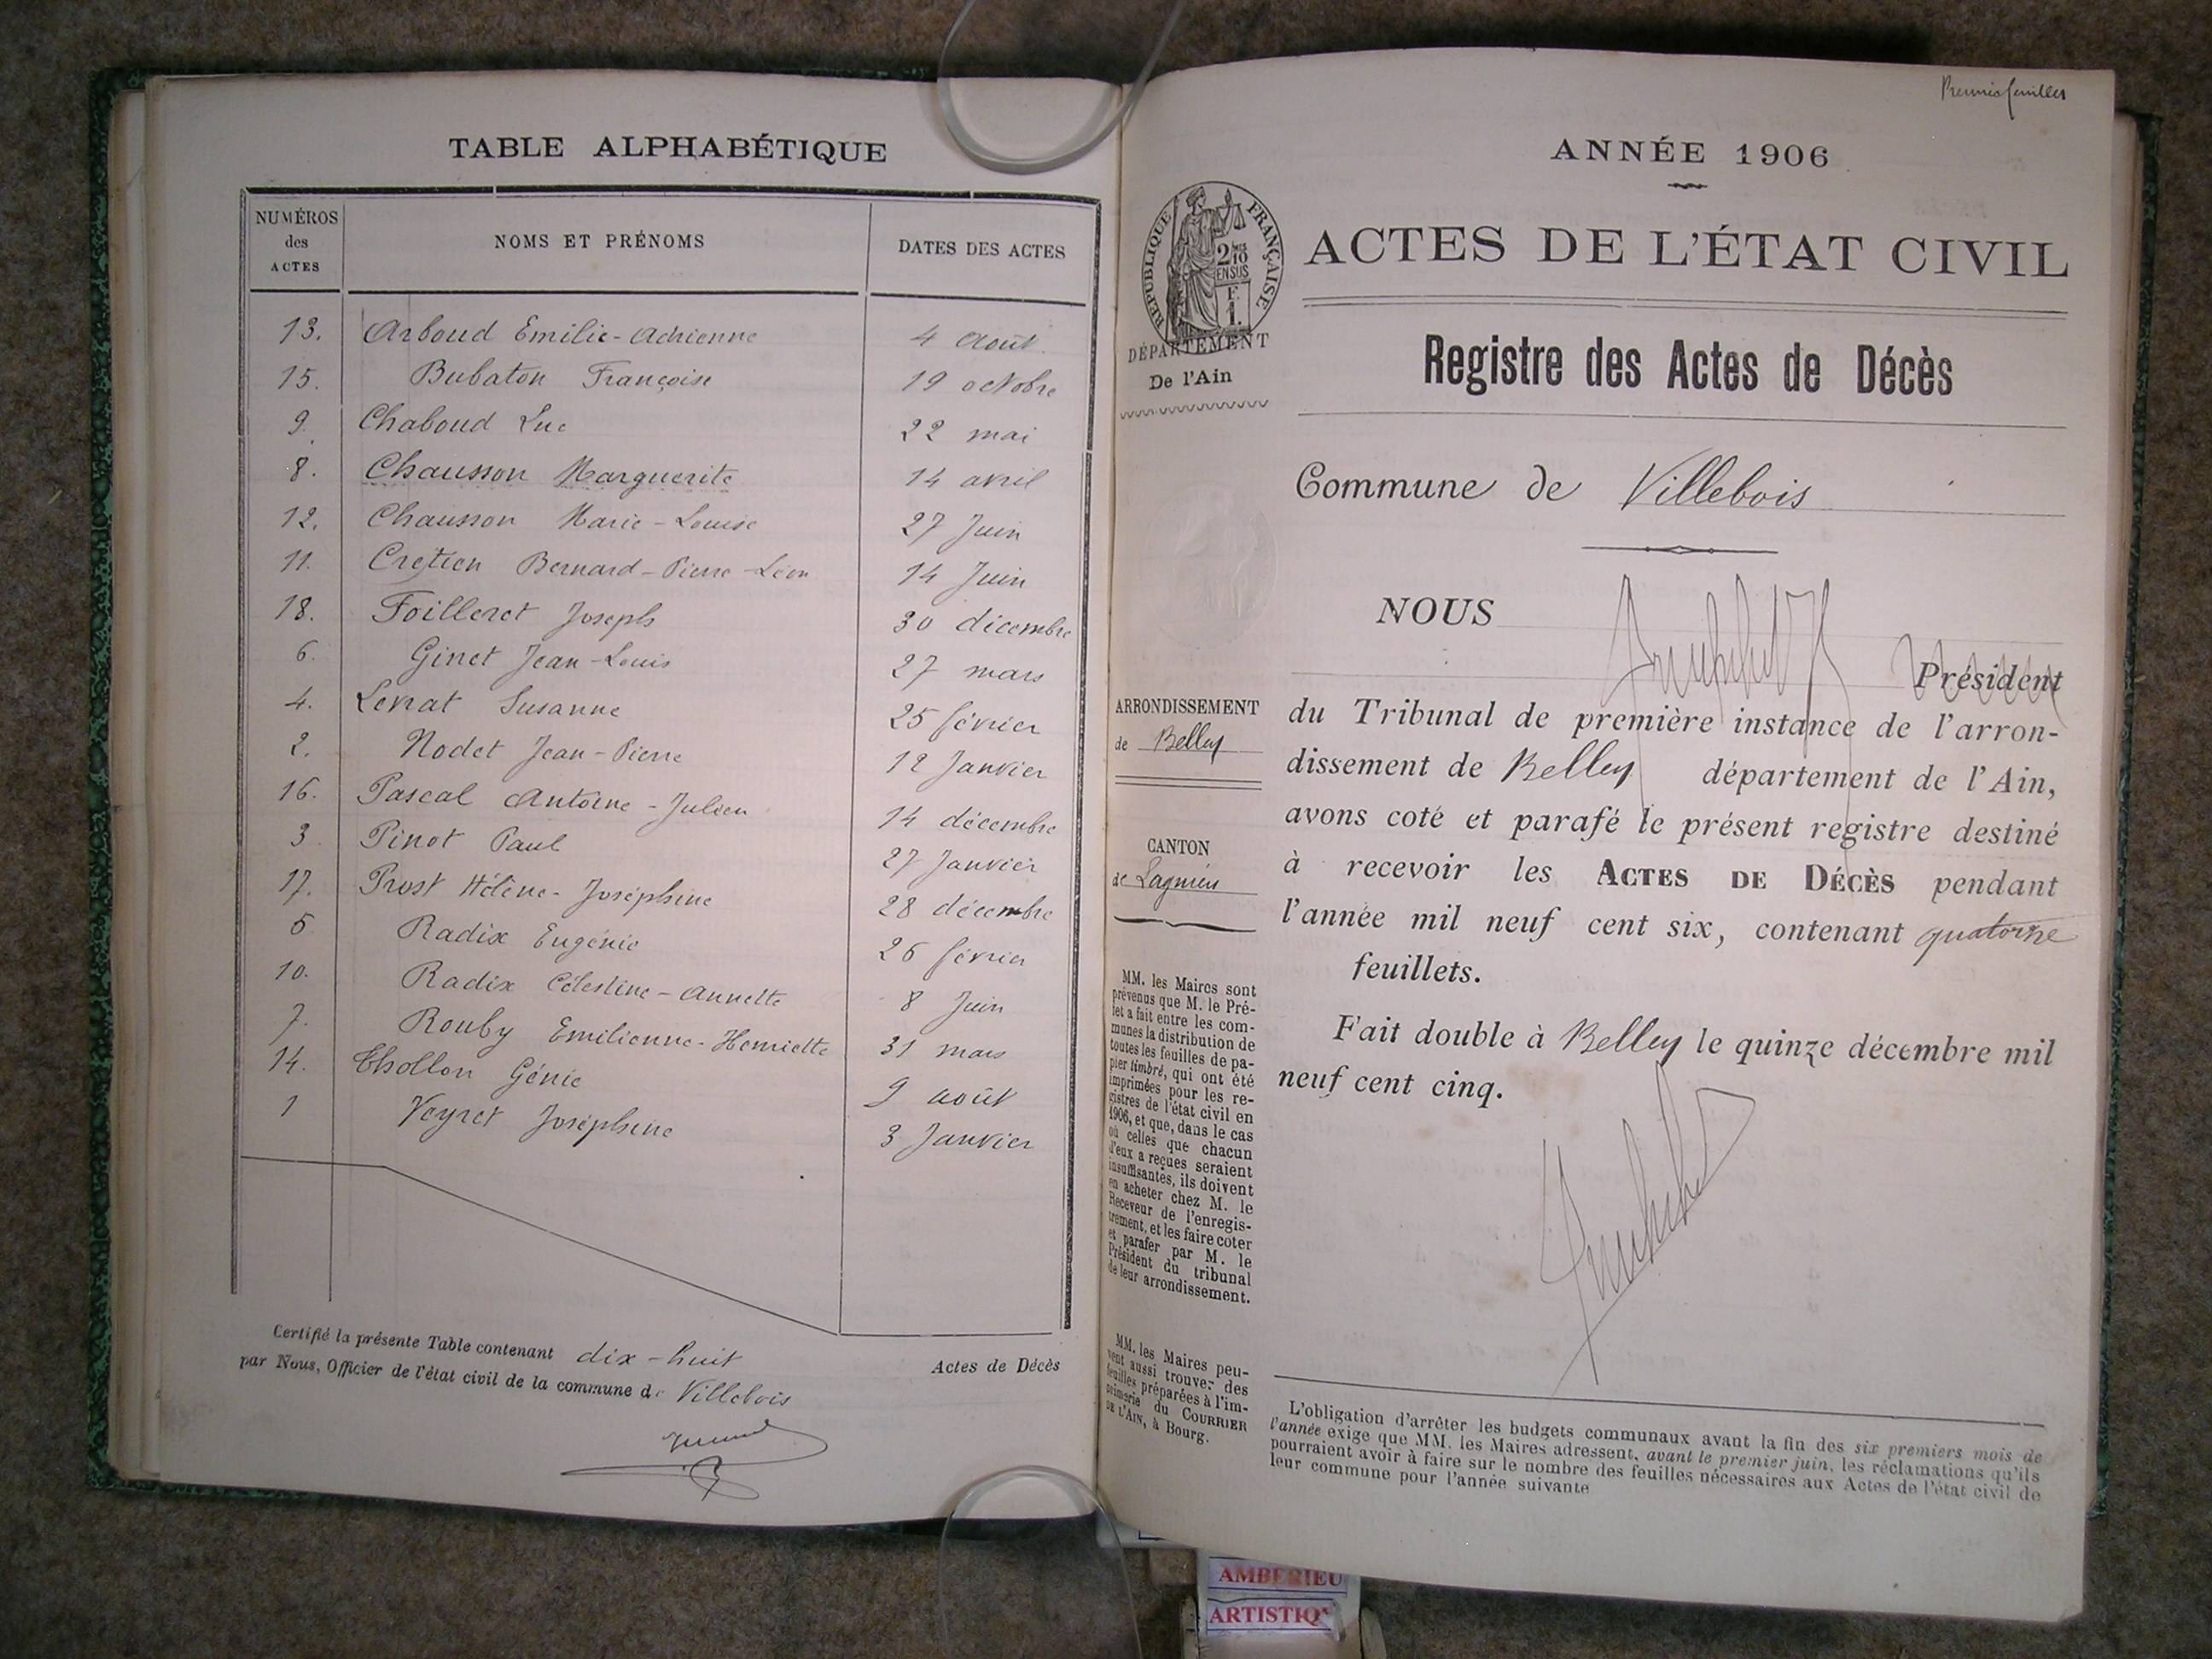 TABLE ALPHABÉTIQUE
NUMÉROS des ACTES NOMS ET PRÉNOMS DATES DES ACTES
13. Arboud Emilie-Adrienne 4 Août
15. Bubaton Françoise 19 octobre
9. Chaboud Luc 22 mai
8. Chausson Marguerite 14 avril
12. Chausson Marie-Louise 27 Juin
11. Cretien Bernard-Pierre-Léon 14 Juin
18. Foilleret Joseph 30 décembre
6. Ginet Jean-Louis 27 mars
4. Levrat Susanne 25 février
2. Nodet Jean-Pierre 12 Janvier
16. Pascal Antoine-Julien 14 décembre
3 Pinot Paul 27 Janvier
17. Prost Hélène-Joséphine 28 décembre
5 Radix Eugénie 26 février
10. Radix Célestine-Annette 8 Juin
7. Rouby Emilienne-Henriette 31 mars
14. Thollon Génie 9 août
1 Veyret Joséphine 3 Janvier
Certifié la présente Table contenant dix-huit Actes de Décès
par Nous, Officier de l'état civil de la commune de Villebois
Premier feuillet
ANNÉE 1906
RÉPUBLIQUE FRANÇAISE
2/10 EN SUS
F.
1.
ACTES DE L'ÉTAT CIVIL
DÉPARTEMENT
De l'Ain
Registre des Actes de Décès
Commune de Villebois
NOUS
Président
ARRONDISSEMENT
de Belley
du Tribunal de première instance de l'arron-
dissement de Belley département de l'Ain,
avons coté et parafé le présent registre destiné
CANTON
de Lagnieu
à recevoir les ACTES DE DÉCÈS pendant
l'année mil neuf cent six, contenant quatorze
feuillets.
Fait double à Belley le quinze décembre mil
neuf cent cinq.
MM. les Maires sont
prévenus que M. le Pré-
fet a fait entre les com-
munes la distribution de
toutes les feuilles de pa-
pier timbré, qui ont été
imprimées pour les re-
gistres de l'état civil en
1906, et que, dans le cas
où celles que chacun
d'eux a reçues seraient
insuffisantes, ils doivent
en acheter chez M. le
Receveur de l'enregis-
trement, et les faire coter
et parafer par M. le
Président du tribunal
de leur arrondissement.
MM. les Maires peu-
vent aussi trouver des
feuilles préparées à l'im-
primerie du COURRIER
DE L'AIN, à Bourg.
L'obligation d'arrêter les budgets communaux avant la fin des six premiers mois de
l'année exige que MM. les Maires adressent, avant le premier juin, les réclamations qu'ils
pourraient avoir à faire sur le nombre des feuilles nécessaires aux Actes de l'état civil de
leur commune pour l'année suivante
AMBERIEU
ARTISTIQ